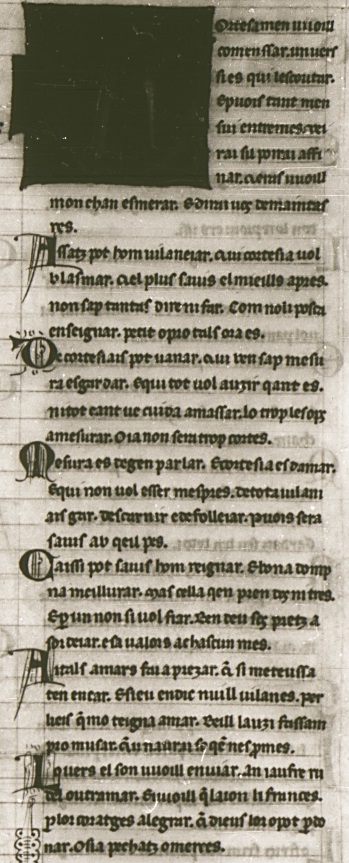 Ortesamen uuoill
comenssar. un uers
si es qui lescoutar.
Epuois tant men
sui entremes. uei
rai sil porrai affi
nar. uuoill
mon chan esmerar. Edirai uos demaintas
res.
Assatz pot hom uilaneiar. qui cortesia uol
blasmar. qel plus sauis el mieills apres.
non sap tantas dire ni far. Com noli posca
enseignar. petit opro tals ora es.
De cortesiais pot uanar. qui ben sap mesu
ra esgardar. Equi tot uol auzir qant es.
ni tot cant ue cuida amassar. lo trop les ops
amesurar. O ia non sera trop cortes.
Mesura es degen parlar. Ecortesia es damar.
Equi non uol esser mespres. de tota uilani
ais gar. descarnir e defolleiar. puois sera
sauis ab qeil pes.
Caissi pot sauis hom reignar. Ebona domp
na meillurar. mas cella qen pren dos ni tres.
Ep un non si uol fiar. Ben deu sos pretz a
sordeiar. esa ualors achascun mes.
Aitals amars fai a prezar. q̄ si meteussa
ten encar. Esieu endic nuill uilanes. per
lieis q̄mo teigna amar. Beill lauzi fassam
pro musar. q̄u naurai so qe nes pmes.
Lo uers el son uuoill enuiar. an iaufre ru
del outramar. Euuoill q̄ laion li frances.
p lor coratges alegrar. q̄ dieus lor o pot pdo
nar. Osia pechatz omerces.